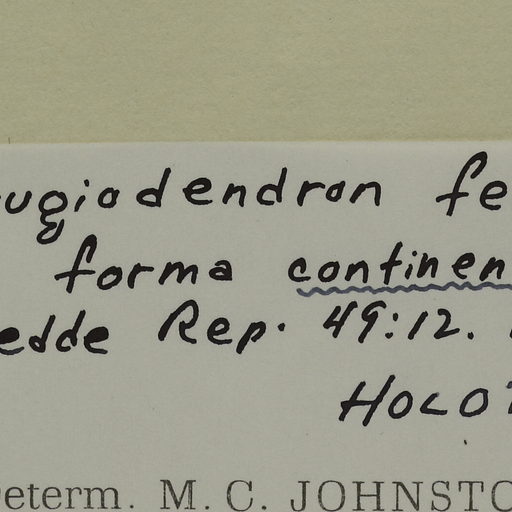 ugiodendron fe
forma continen
edde Rep. 49:12.
HOLOT
eterm. M. C. JOHNSTO